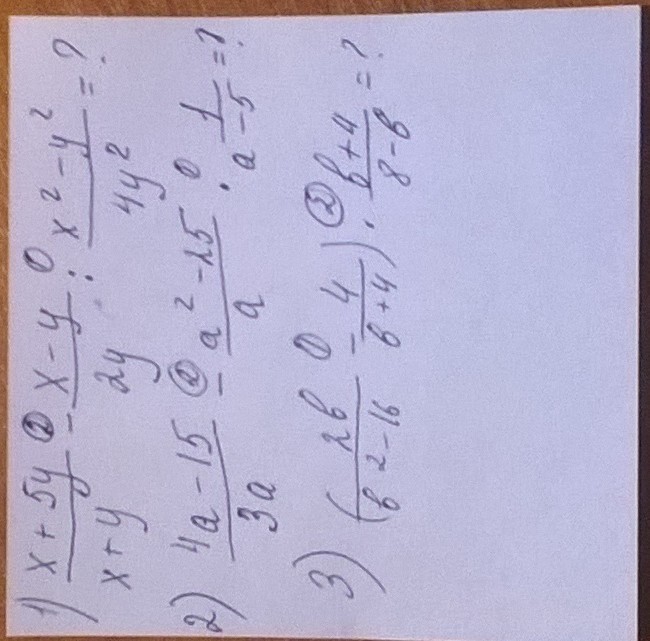 1) (x+5y)/(x+y) ② - (x-y)/(2y) ① : (x²-y²)/(4y²) = ?
2) (4a-15)/(3a) ② - (a²-25)/a ① · 1/(a-5) = ?
3) (2b/(b²-16) ① - 4/(b+4)) ② · (b+4)/(8-b) = ?